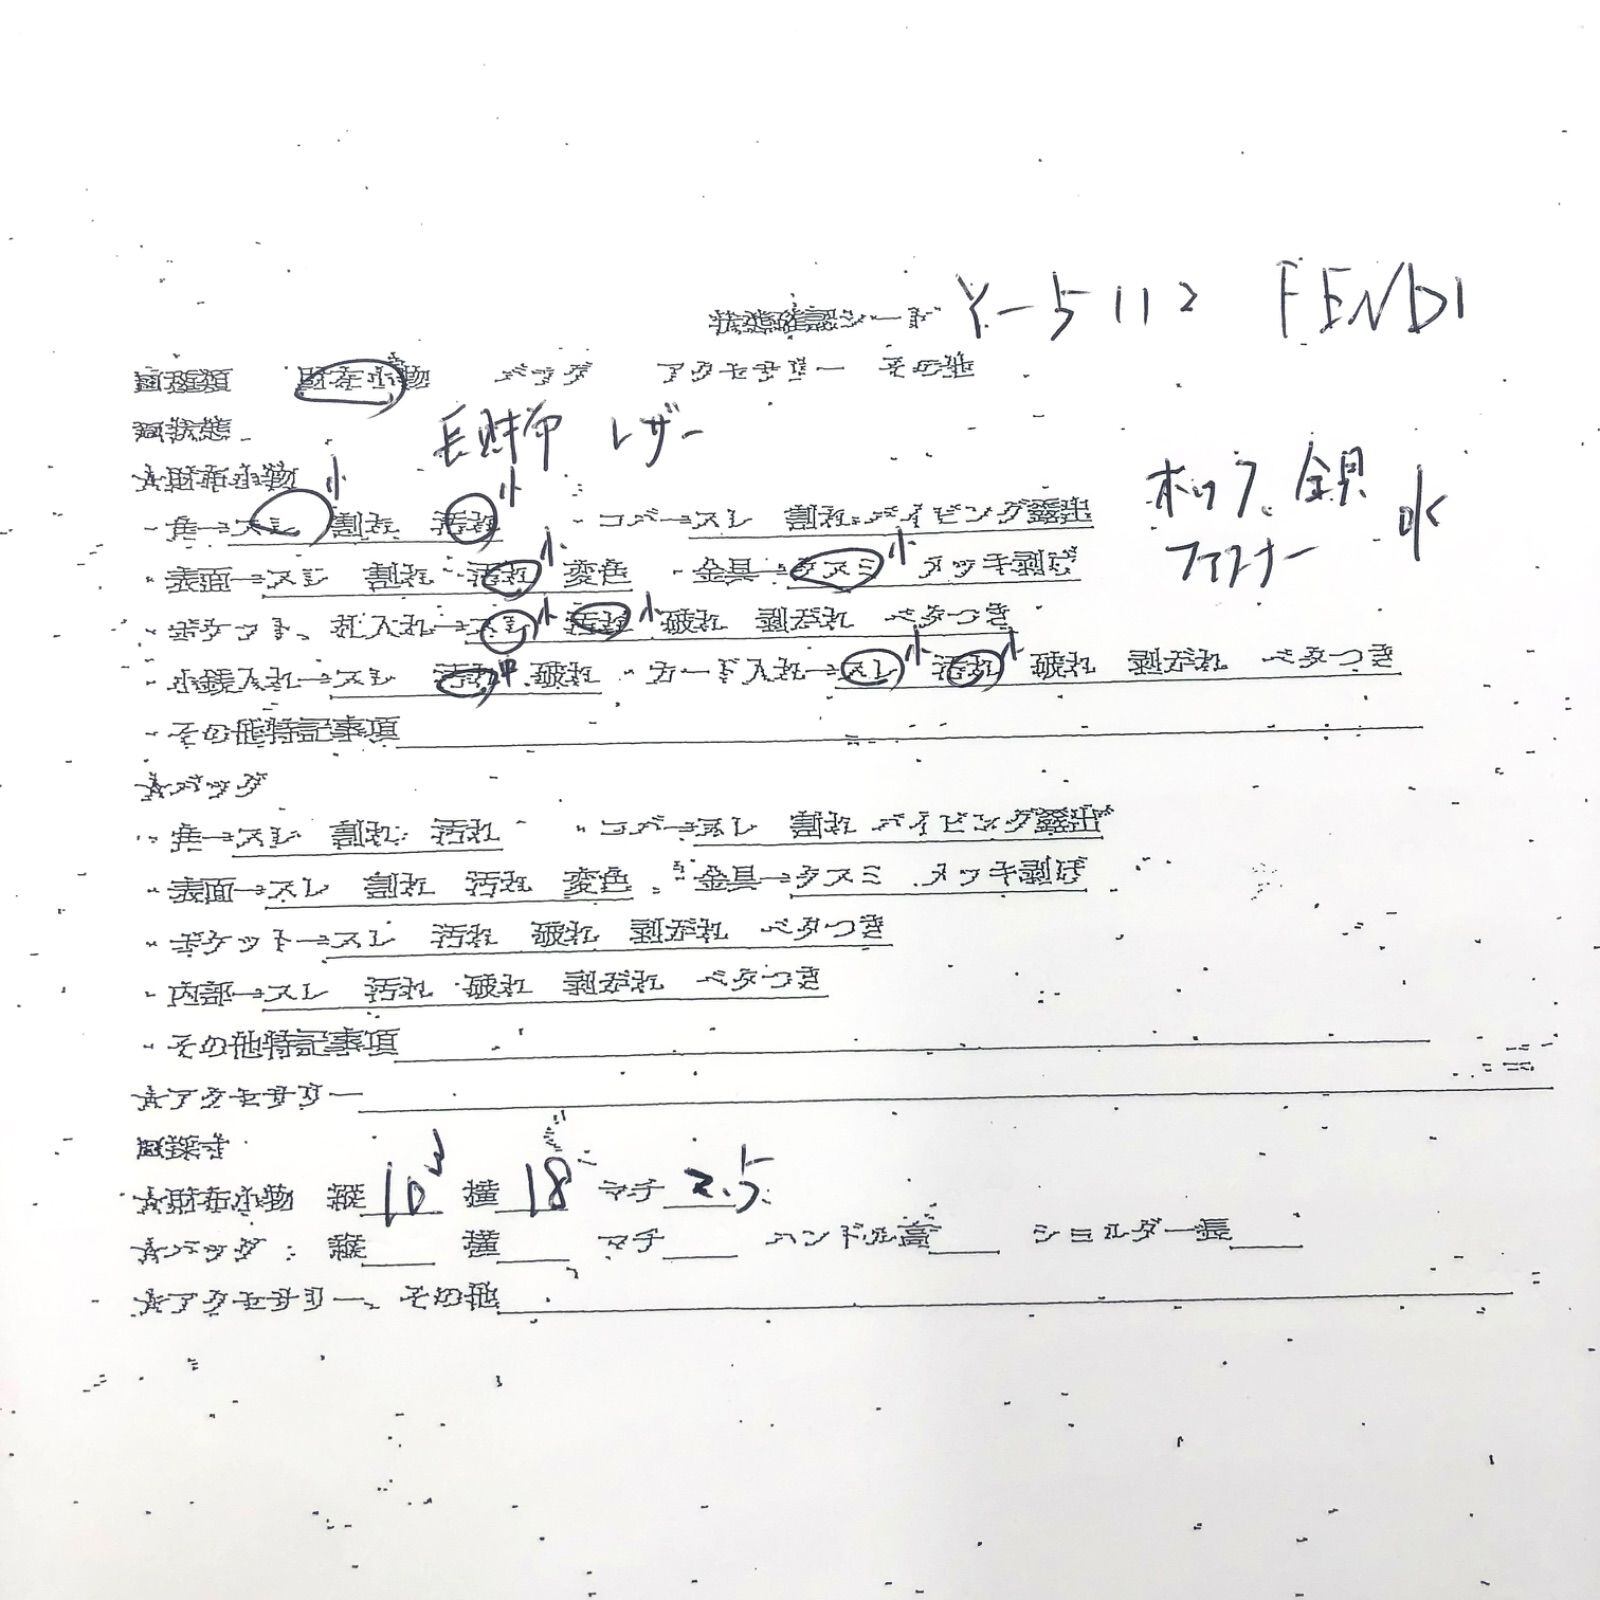 状態確認シート Y-5112 FENDI
回種類 財布小物 バッグ アクセサリー その他
回状態
長財布 レザー
★財布小物
ホック、金具
ファスナー
・角→スレ 小 割れ 汚れ 小 ・コバ→スレ 割れ パイピング露出
・表面→スレ 割れ 汚れ 小 変色 ・金具→クスミ 小 メッキ剥げ
・ポケット、札入れ→スレ 小 汚れ 小 破れ 剥がれ ベタつき
・小銭入れ→スレ 汚れ 中 破れ ・カード入れ→スレ 小 汚れ 小 破れ 剥がれ ベタつき
・その他特記事項
★バッグ
・角→スレ 割れ 汚れ ・コバ→スレ 割れ パイピング露出
・表面→スレ 割れ 汚れ 変色 ・金具→クスミ メッキ剥げ
・ポケット→スレ 汚れ 破れ 剥がれ ベタつき
・内部→スレ 汚れ 破れ 剥がれ ベタつき
・その他特記事項
★アクセサリー
回採寸
★財布小物 縦 10 横 18 マチ 2.5
★バッグ 縦 横 マチ ハンドル高 ショルダー長
★アクセサリー、その他